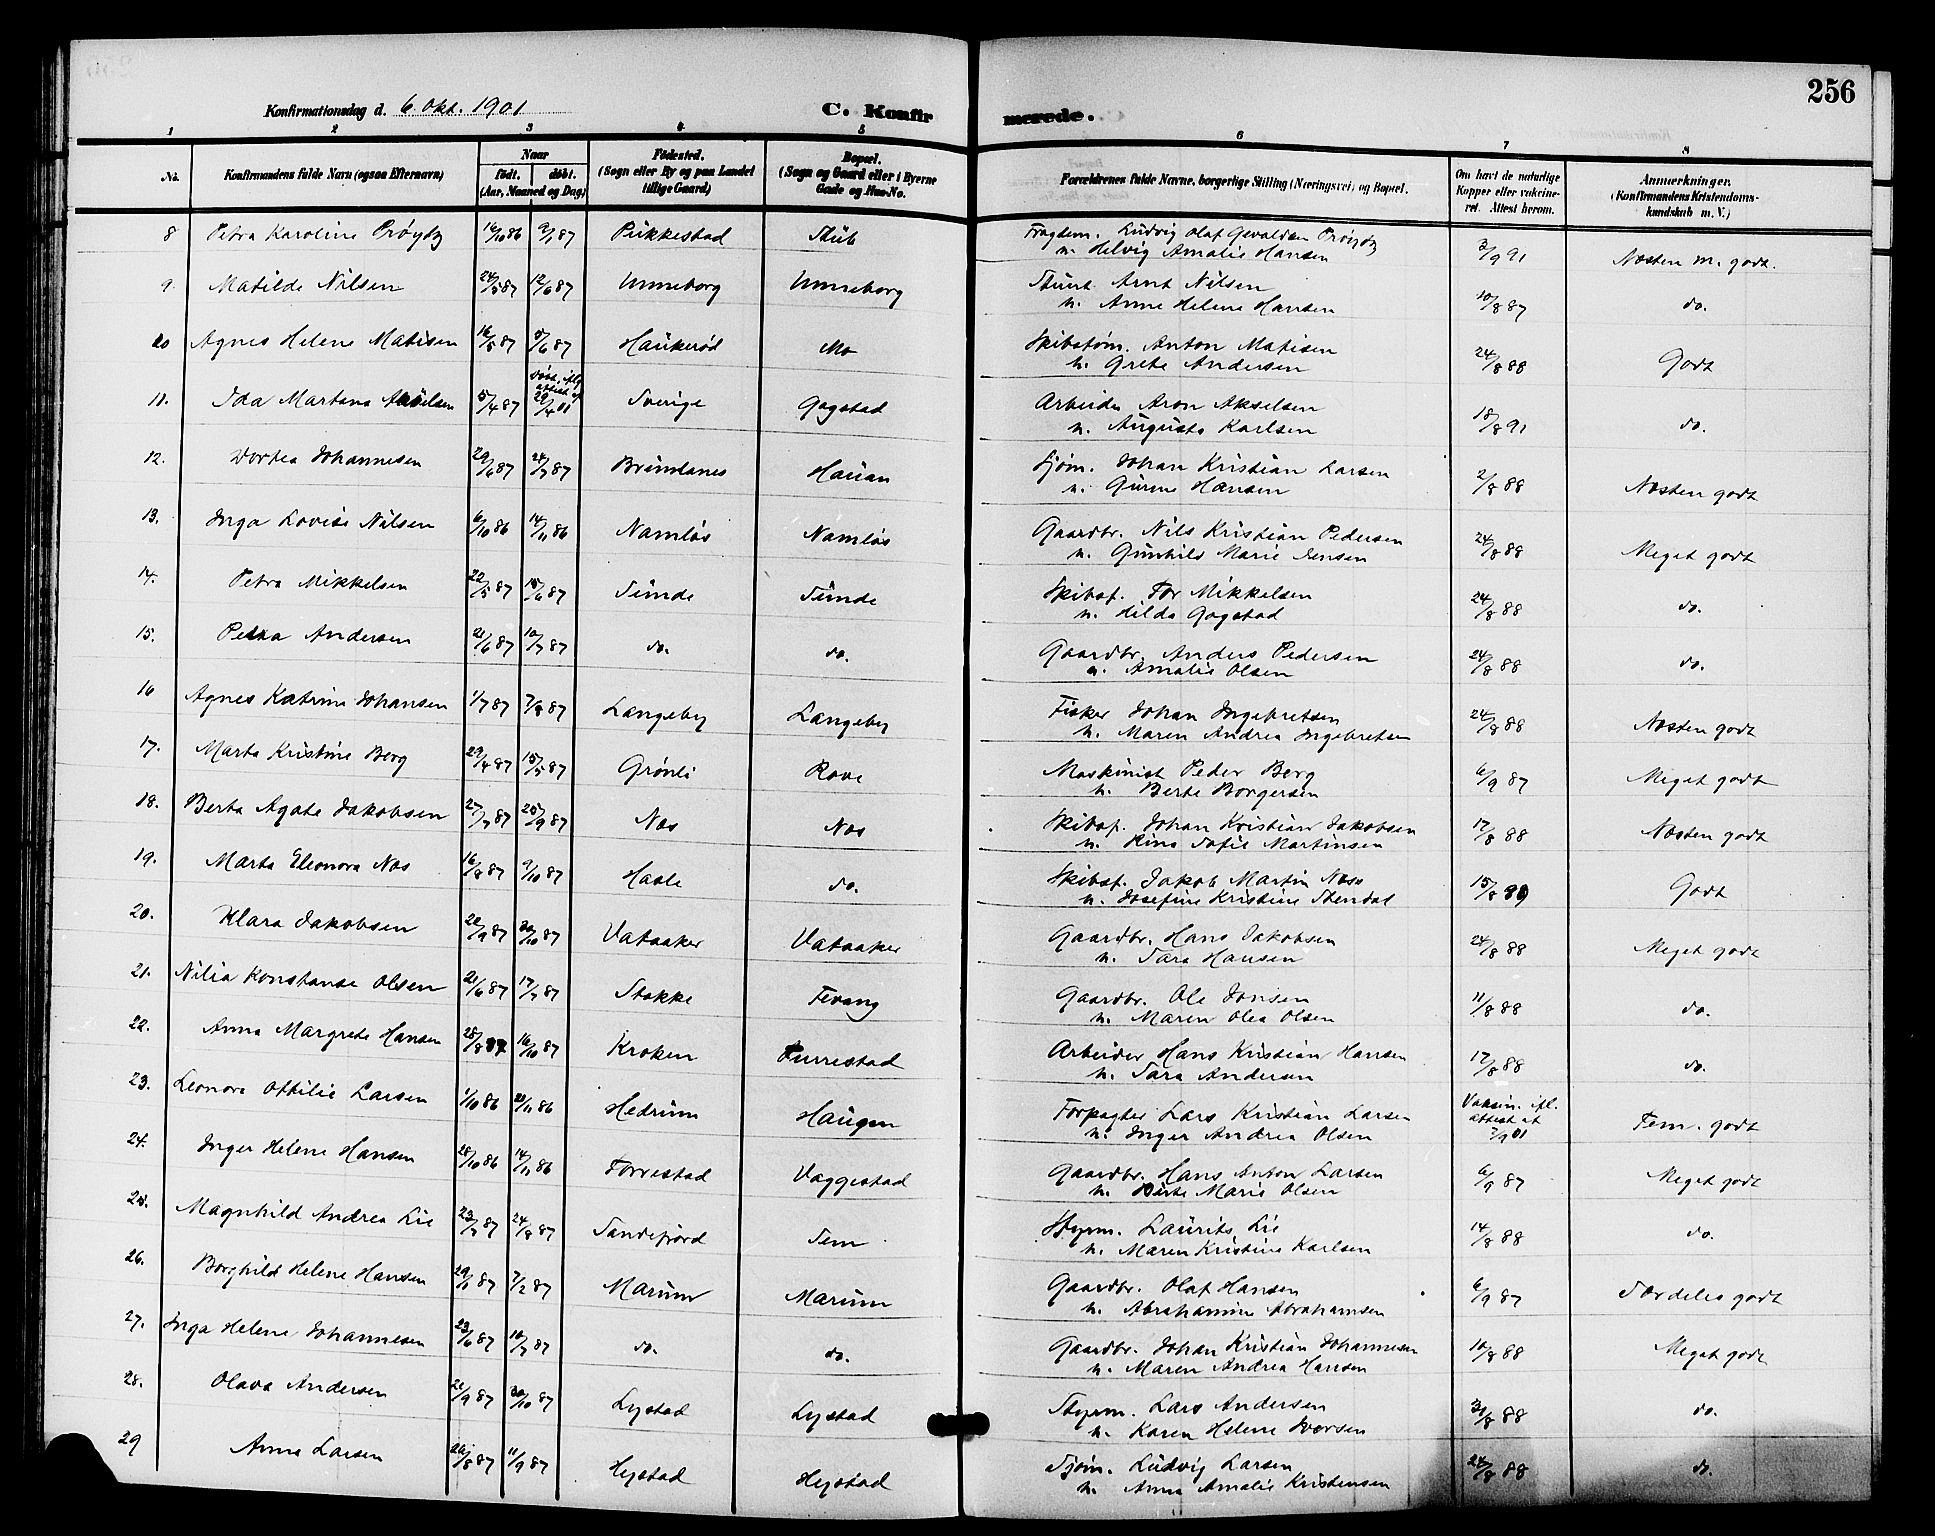 256
Konfirmationsdag d. 6. Okt. 1901 C. Konfirmerede.
1 2 3 4 5 6 7 8
No. Konfirmandens fulde Navn (ogsaa Efternavn) Naar født. døbt. (Aar, Maaned og Dag) Fødested. (Sogn eller By og paa Landet tillige Gaard) Bopæl. (Sogn og Gaard eller i Byerne Gade og Hus-No. Forældrenes fulde Navne, borgerlige Stilling (Næringsvei) og Bopæl. Om havt de naturlige Kopper eller vakcineret. Attest herom. Anmærkninger. (Konfirmandens Kristendomskundskab m. V.)
8 Petra Karoline Prøydz 14/10 86 9/1 87 Pukkestad Stub Fragtem. Ludvig Olaf Gevaldsen Prøydz
n. Helvig Amalie Hansen 3/9 91 Næsten m. godt.
9. Matilde Nilsen 24/5 87 12/6 87 Unneborg Unneborg Stuert Arnt Nilsen
n. Anne Helene Hansen 10/8 87 do.
10 Agnes Helene Matisen 16/5 87 5/6 87 Haukerød Mo Skibstøm. Anton Matisen
n. Grete Andersen 24/8 88 Godt
11. Ida Martana Akselsen 5/4 87 døbt iflg attest af 29/4 01 Sverige Gogstad Arbeider Aron Akselsen
n. Augusta Karlsen 18/8 91 do.
12. Dortea Johannesen 29/6 87 24/7 87 Brunlanes Hauan Sjøm. Johan Kristian Larsen
n. Gurine Hansen 2/8 88 Næsten godt
13. Inga Lovise Nilsen 6/10 86 14/11 86 Namløs Namløs Gaardbr. Nils Kristian Pedersen
n. Gunhild Marie Jensen 24/8 88 Meget godt
14. Petra Mikkelsen 22/5 87 15/6 87 Sunde Sunde Skibsf. Tor Mikkelsen
n. Hilda Gogstad 24/8 88 do.
15. Petra Andersen 21/6 87 10/7 87 do. do. Gaardbr. Anders Pedersen
n. Amalie Olsen 24/8 88 do.
16 Agnes Katrine Johansen 1/7 87 7/8 87 Langeby Langeby Fisker Johan Ingebretsen
n. Maren Andrea Ingebretsen 24/8 88 Næsten godt
17. Marta Kristine Berg 29/4 87 15/5 87 Grønli Rove Maskinist Peder Berg
n. Berte Borgersen 6/9 87 Meget godt
18. Berta Agate Jakobsen 27/7 87 25/9 87 Næs Næs Skibsf. Johan Kristian Jakobsen
n. Rina Sofie Martinsen 17/8 88 Næsten godt
19. Marta Eleonora Næs 16/8 87 9/10 87 Hasle do. Skibsf. Jakob Martin Næss
n. Josefine Kristine Stendal 15/8 89 Godt
20. Klara Jakobsen 22/9 87 30/10 87 Vataaker Vataaker Gaardbr. Hans Jakobsen
n. Sara Hansen 24/8 88 Meget godt
21. Nilia Konstanse Olsen 21/6 87 17/7 87 Stokke Fevang Gaardbr. Ole Jonsen
n. Maren Olea Olsen 11/8 88 do.
22. Anna Margrete Hansen 28/8 87 16/10 87 Kroken Furrestad Arbeider Hans Kristian Hansen
n. Sara Andersen 17/8 88 do.
23. Leonora Ottilie Larsen 1/10 86 21/11 86 Hedrum Haugen Forpagter Lars Kristian Larsen
n. Inger Andrea Olsen Vaksin. ifl. attest af 3/9 01 Tem. godt
24. Inger Helene Hansen 28/10 86 14/11 86 Torrestad Vaggestad Gaardbr. Hans Anton Larsen
n. Berte Marie Olsen 6/9 87 Meget godt
25. Magnhild Andrea Lie 23/7 87 24/8 87 Sandefjord Sem Styrm. Laurits Lie
n. Maren Kristine Karlsen 14/8 88 do.
26. Borghild Helene Hansen 29/1 87 7/2 87 Marum Marum Gaardbr. Olaf Hansen
n. Abrahamine Abrahamsen 6/9 87 Særdeles godt
27. Inga Helene Johannesen 23/6 87 10/7 87 do. do. Gaardbr. Johan Kristian Johannesen
n. Maren Andrea Hansen 10/8 88 Meget godt
28. Olava Andersen 21/9 87 30/10 87 Lystad Lystad Styrm. Lars Andersen
n. Karen Helene Iversen 31/8 88 do.
29 Anna Larsen 20/8 87 11/9 87 Hystad Hystad Sjøm. Ludvig Larsen
n. Anna Amalie Kristensen 24/8 88 do.